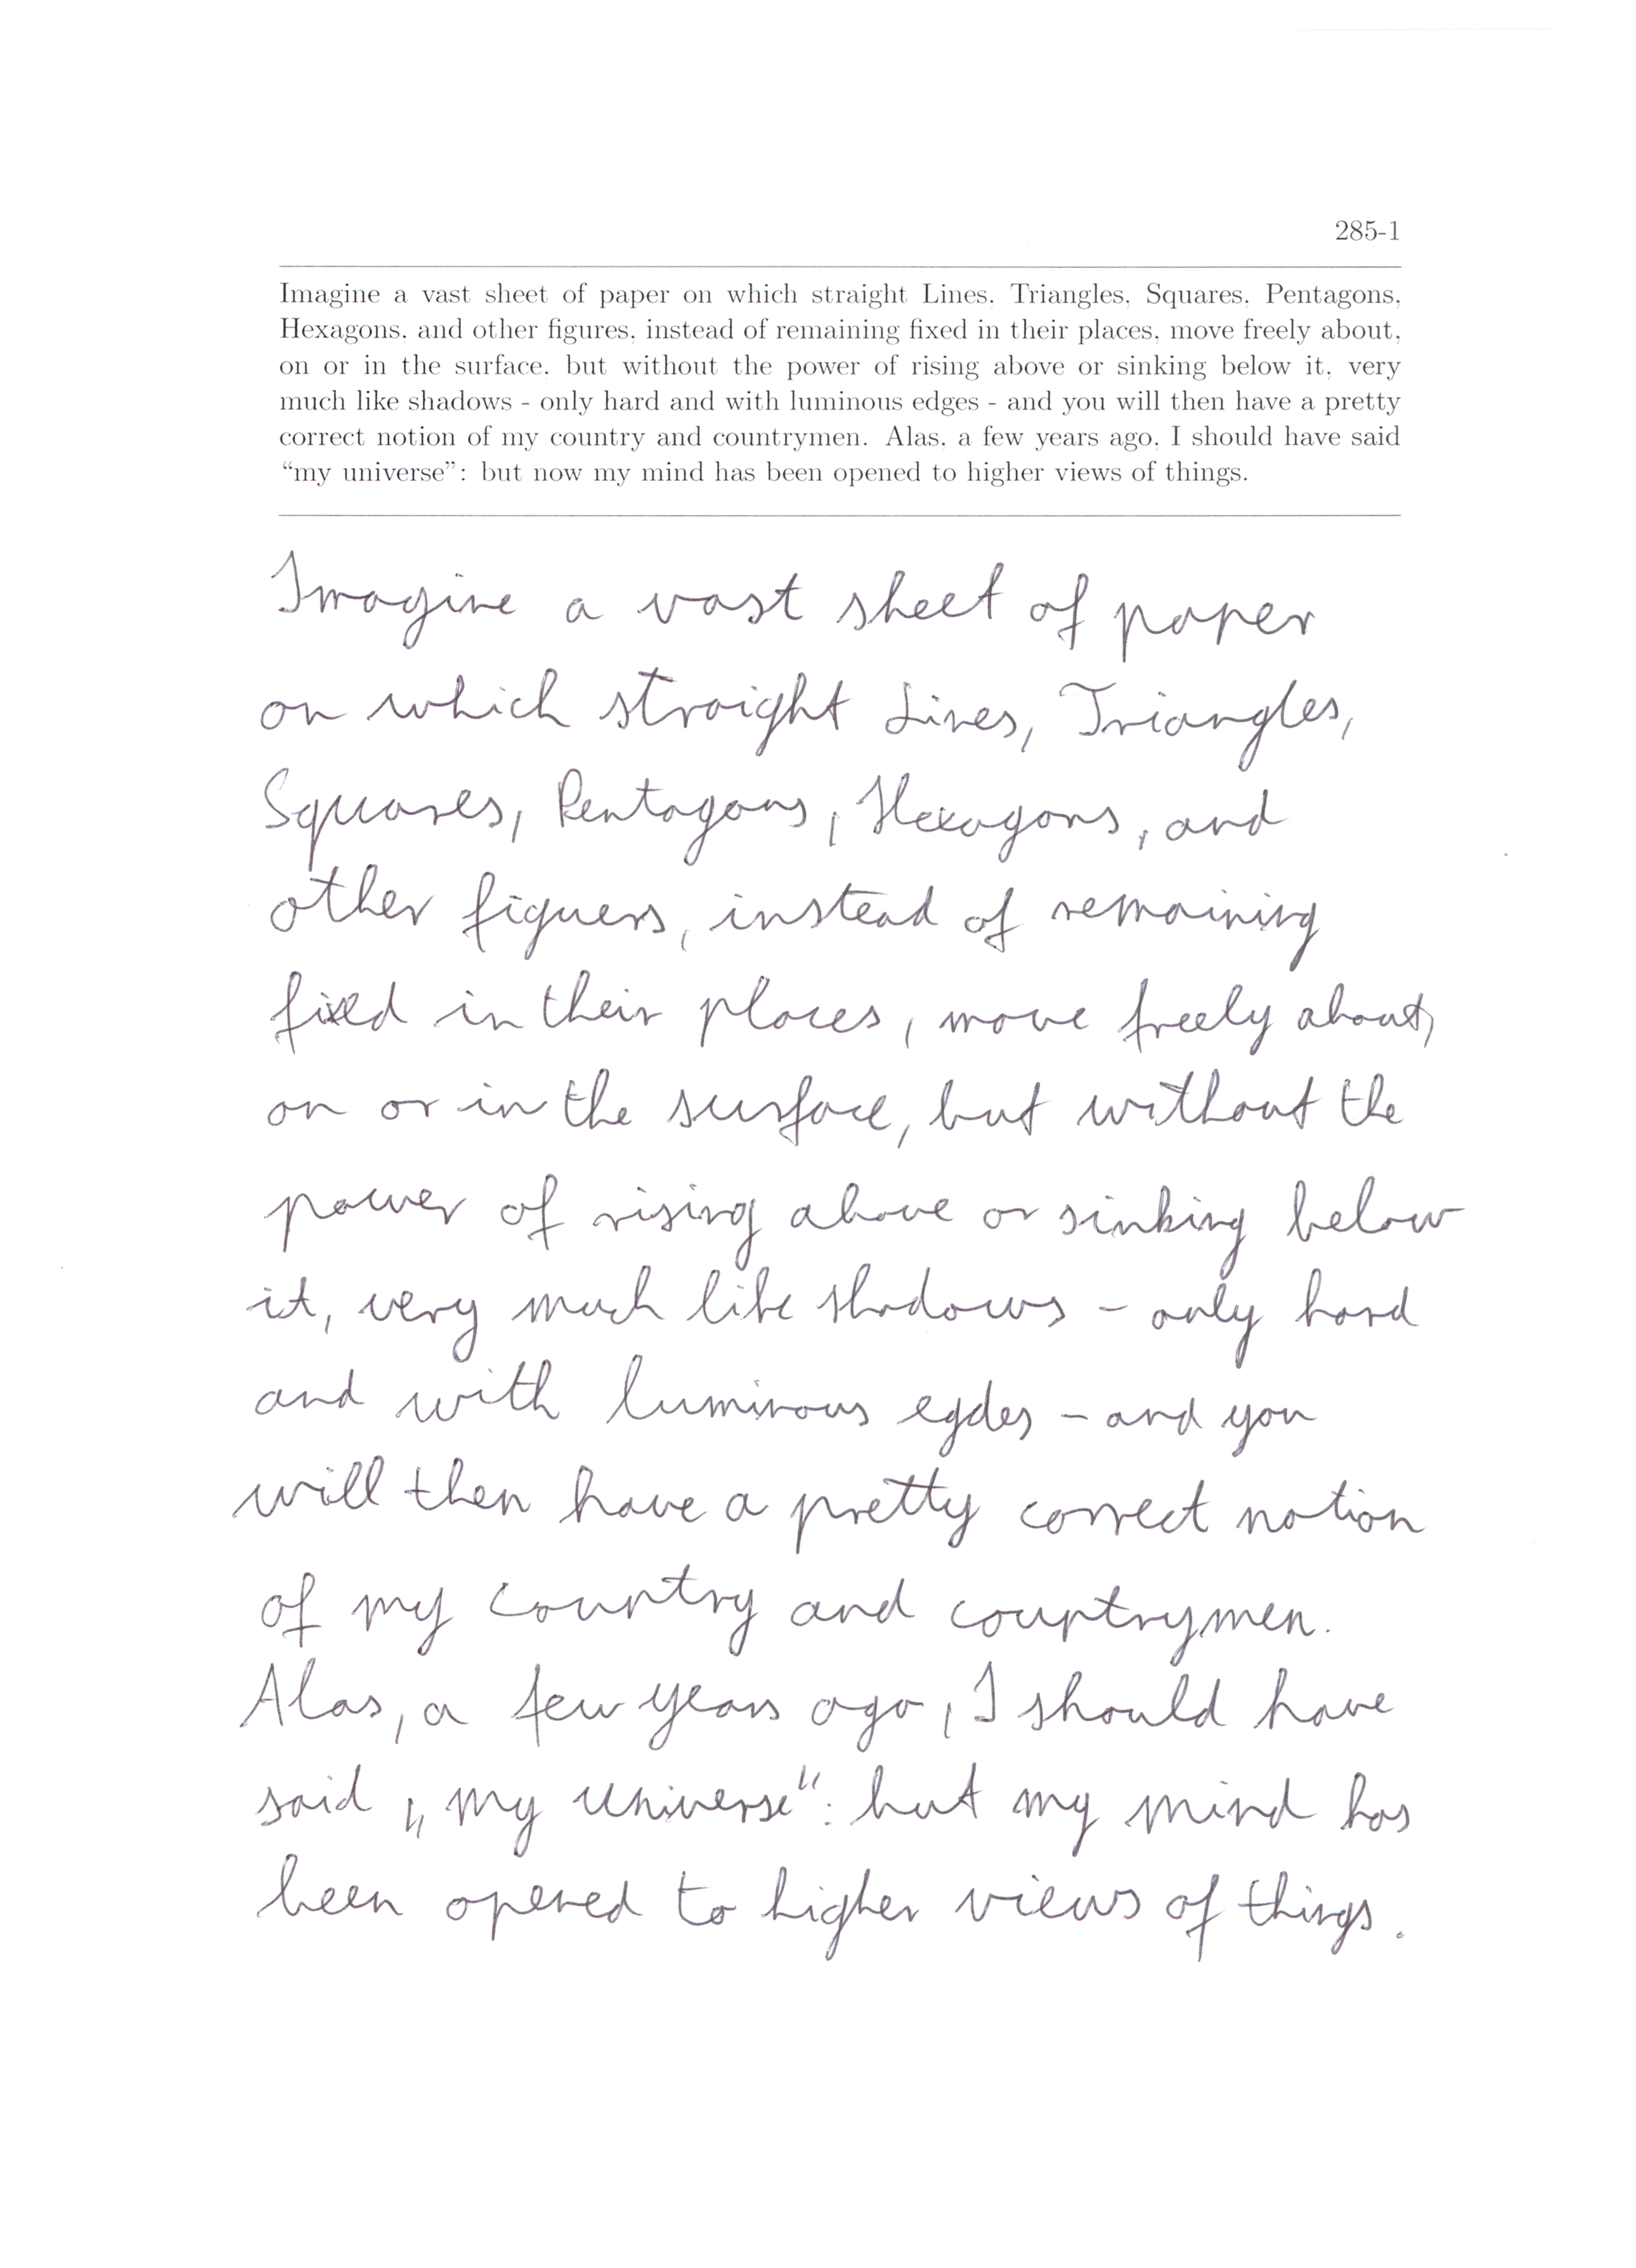 285-1
Imagine a vast sheet of paper on which straight Lines, Triangles, Squares, Pentagons,
Hexagons, and other figures, instead of remaining fixed in their places, move freely about,
on or in the surface, but without the power of rising above or sinking below it, very
much like shadows - only hard and with luminous edges - and you will then have a pretty
correct notion of my country and countrymen. Alas, a few years ago, I should have said
“my universe”: but now my mind has been opened to higher views of things.
Imagine a vast sheet of paper
on which straight Lines, Triangles,
Squares, Pentagons, Hexagons, and
other figuers, instead of remaining
fixed in their places, move freely about,
on or in the surface, but without the
power of rising above or sinking below
it, very much like shadows - only hard
and with luminous egdes - and you
will then have a pretty correct notion
of my country and countrymen.
Alas, a few years ago, I should have
said „my universe“: but my mind has
been opened to higher views of things.